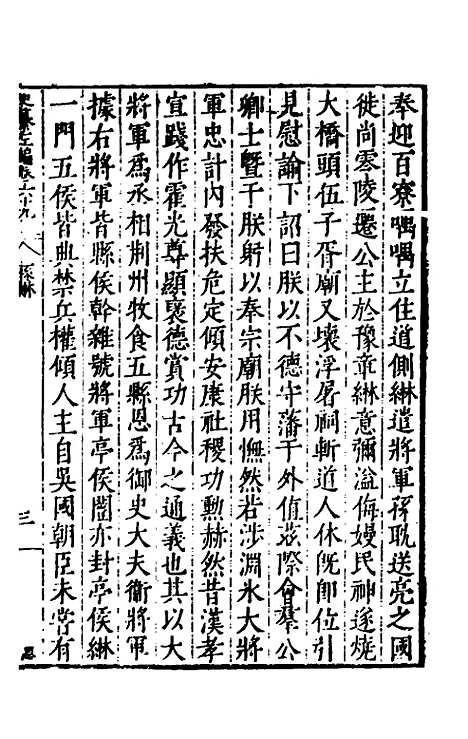 奉迎百寮喁喁立住道側綝遣將軍孫耽送亮之國
徙尚零陵遷公主於豫章綝意彌溢侮嫚民神遂燒
大橋頭伍子胥廟又壞浮屠祠斬道人休既即位引
見慰諭下詔曰朕以不德守藩于外值茲際會羣公
卿士暨于朕躬以奉宗廟朕用憮然若涉淵氷大將
軍忠計內發扶危定傾安康社稷功勲赫然昔漢孝
宣踐作霍光尊顯襃德賞功古今之通義也其以大
將軍爲丞相荆州牧食五縣恩爲御史大夫衛將軍
據右將軍皆縣侯幹雜號將軍亭侯闓亦封亭侯綝
一門五侯皆典禁兵權傾人主自吳國朝臣未嘗有
孫綝
三